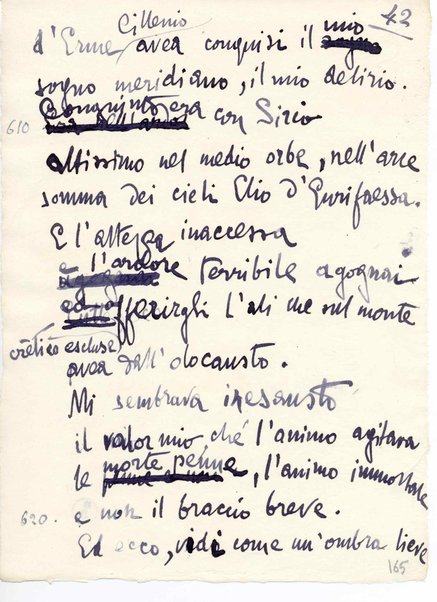 42
Cillenio
d'Erme avea conquisi il mio
sogno meridiano, il mio delirio.
Congiunto era con Sirio
610
altissimo nel medio orbe, nell'arce
somma dei cieli Elio d'Eurifaessa.
E l'altezza inaccessa
e l'ardore terribile agognai
ed offerirgli l'ali che sul monte
crètico escluse
avea dall'olocausto.
Mi sembrava inesausto
il valor mio ché l'animo agitava
le morte penne, l'animo immortale
e non il braccio breve.
620.
Ed ecco, vidi come un'ombra lieve
165